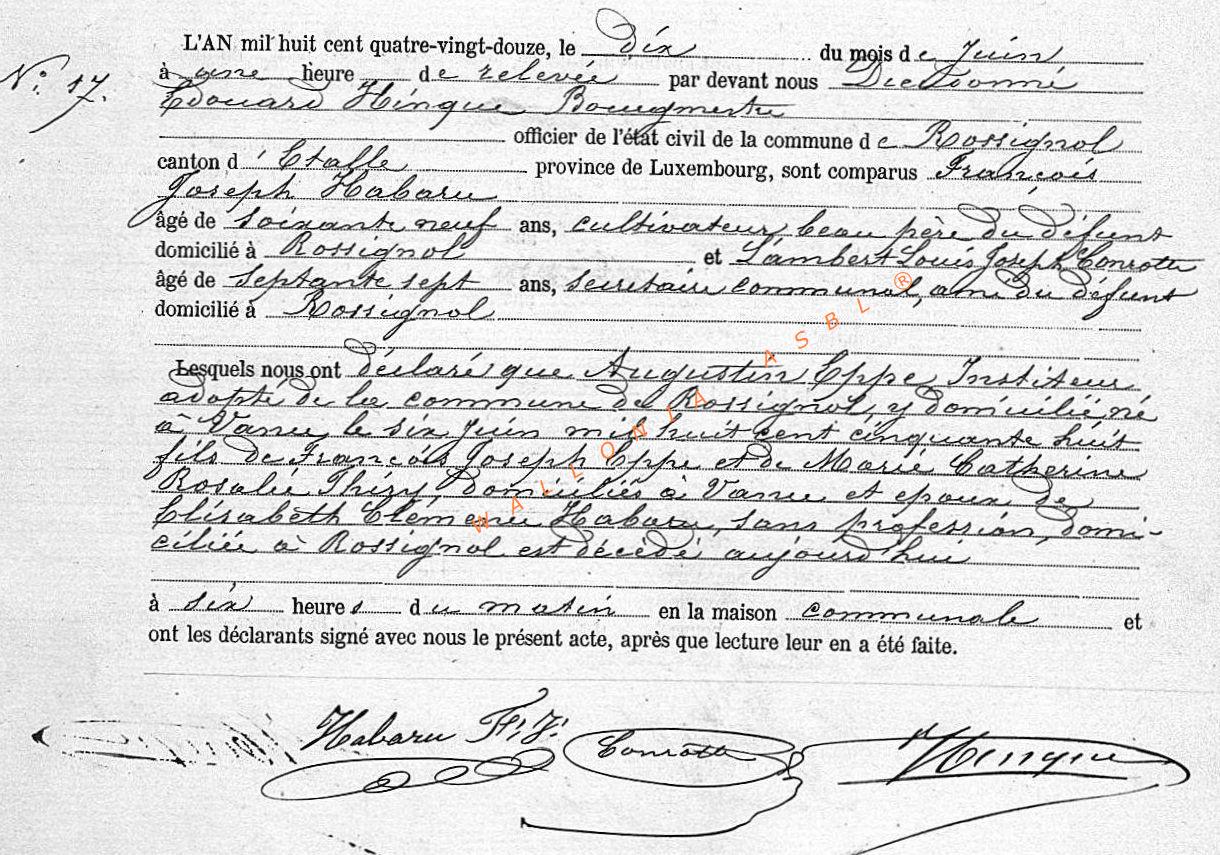 L'AN mil huit cent quatre-vingt-douze, le dix du mois de Juin
N° 17.
à une heure de relevée par devant nous Dieudonné
Edouard Hinque Bourgmestre
officier de l'état civil de la commune de Rossignol
canton d'Etalle province de Luxembourg, sont comparus François
Joseph Habaru
âgé de soixante neuf ans, cultivateur, beau père du défunt
domicilié à Rossignol et Lambert Louis Joseph Conrotte
âgé de septante sept ans, secrétaire communal, ami du défunt
domicilié à Rossignol
Lesquels nous ont déclaré que Augustin Eppe Instituteur
adopté de la commune de Rossignol, y domicilié, né
à Vance le six juin mil huit cent cinquante huit
fils de François Joseph Eppe et de Marie Catherine
Rosalie Thiry, domiciliés à Vance et epoux de
Elisabeth Clémence Habaru, sans profession, domi-
ciliée à Rossignol est décédé aujourd'hui
à six heures du matin en la maison communale et
ont les déclarants signé avec nous le présent acte, après que lecture leur en a été faite.
Habaru F. J. Conrotte Hinque
WALLONIA ASBL ®